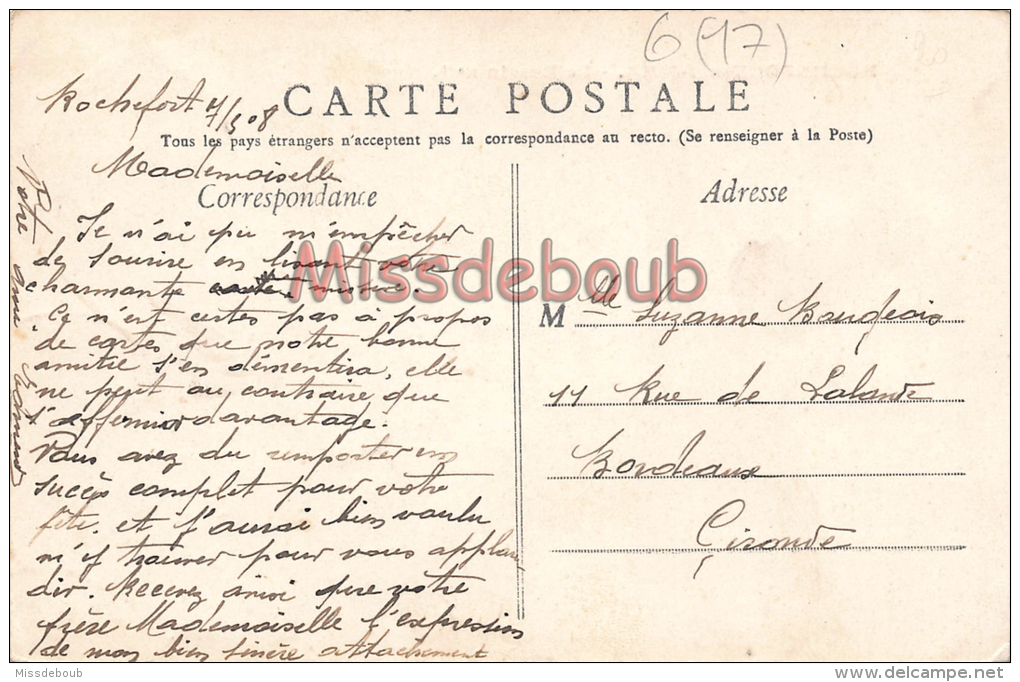 6(17)
Rochefort 4/5 08
CARTE POSTALE
Tous les pays étrangers n'acceptent pas la correspondance au recto. (Se renseigner à la Poste)
Mademoiselle
Correspondance
Je n'ai pu m'empêcher
de sourire en lisant votre
charmante missive.
Ce n'est certes pas à propos
de cartes que notre bonne
amitié s'en démentira, elle
ne peut au contraire que
s'affermir davantage.
Vous avez du remporter un
succès complet pour votre
fête, et j'aurai bien voulu
m'y trouver pour vous applau
dir. Recevez ainsi que votre
frère Mademoiselle l'expression
de mon bien sincère attachement
Votre ami
Adresse
M lle Suzanne Baudeois
11 Rue de Lalande
Bordeaux
Gironde
Missdeboub
Missdeboub
www.delcampe.net